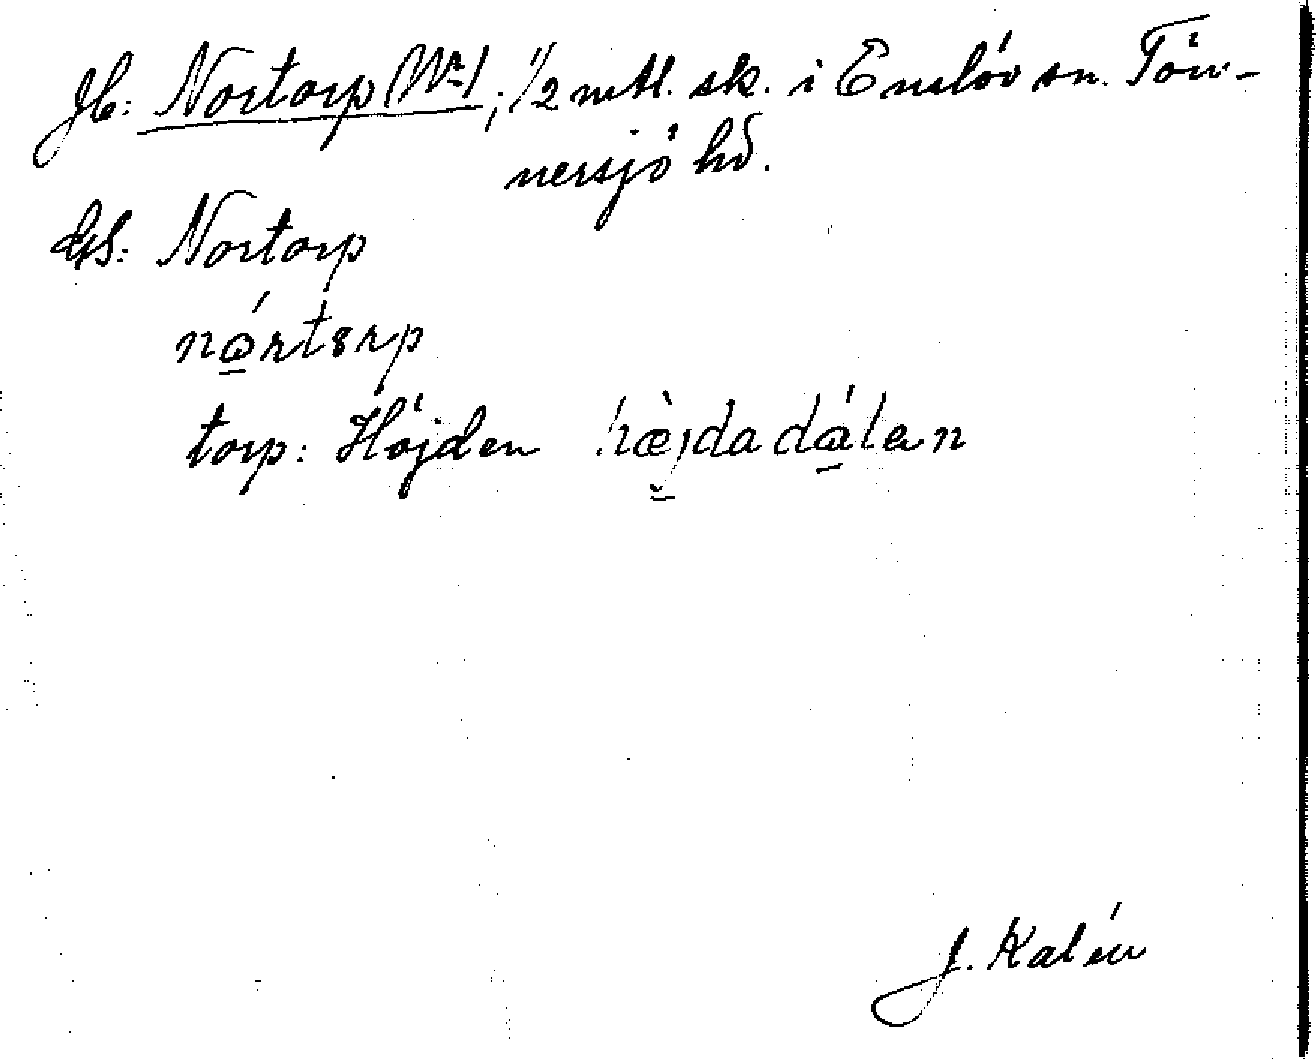 Jb: Nortorp (Nr 1), 1/2 mtl. sk. i Enslöv sn. Tön-
nersjö hd.
GS: Nortorp
nǻrtɤrp
torp: Höjden hæ̀jdadálen
J. Kalén